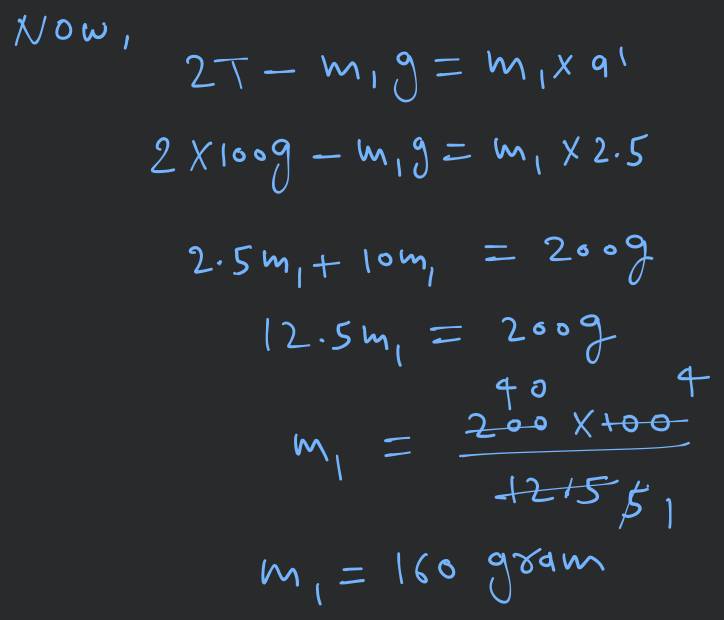 Now,
2T - m₁g = m₁ x a'
2 x 100g - m₁g = m₁ x 2.5
2.5m₁ + 10m₁ = 200g
12.5m₁ = 200g
40 4
m₁ = 200 x 100 / 125 5 1
m₁ = 160 gram